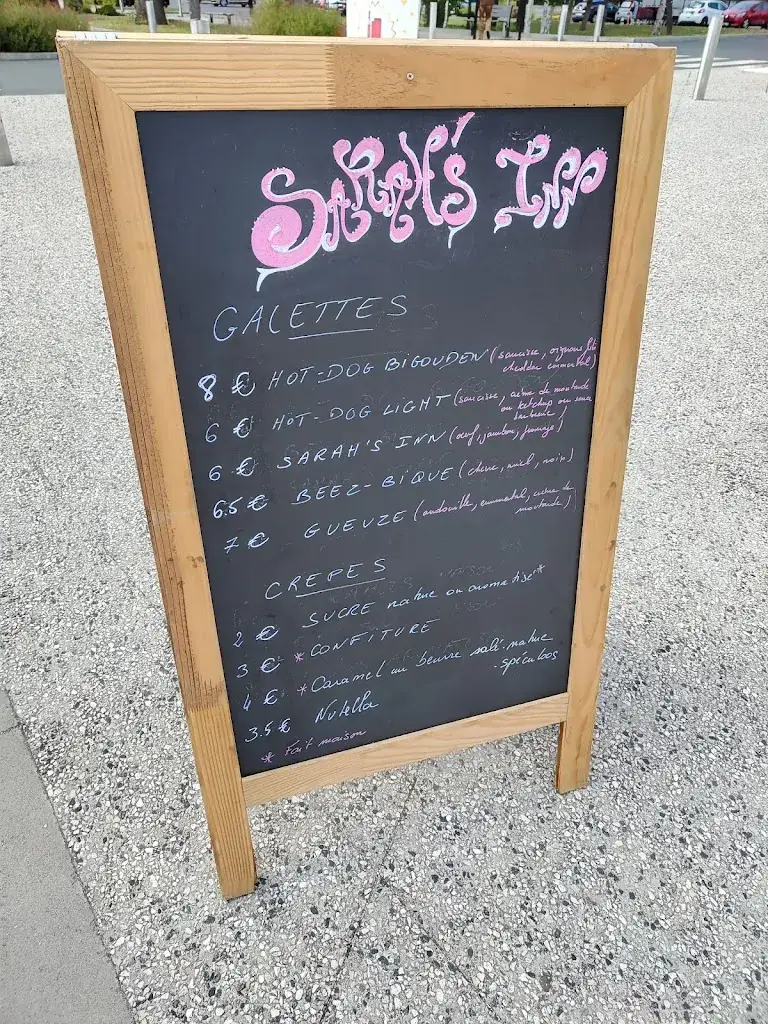 SARAH'S INN
GALETTES
8 € HOT-DOG BIGOUDEN (saucisse, oignons frits
cheddar emmental)
6 € HOT-DOG LIGHT (saucisse, crème de moutarde
ou ketchup ou sauce
barbecue)
6 € SARAH'S INN (œuf, jambon, fromage)
6.5 € BEEZ-BIQUE (chèvre, miel, noix)
7 € GUEUZE (andouille, emmental, crème de
moutarde)
CREPES
2 € SUCRE nature ou aromatisé*
3 € *CONFITURE
4 € *Caramel au beurre salé.nature
.spéculoos
3.5 € Nutella
* Fait maison